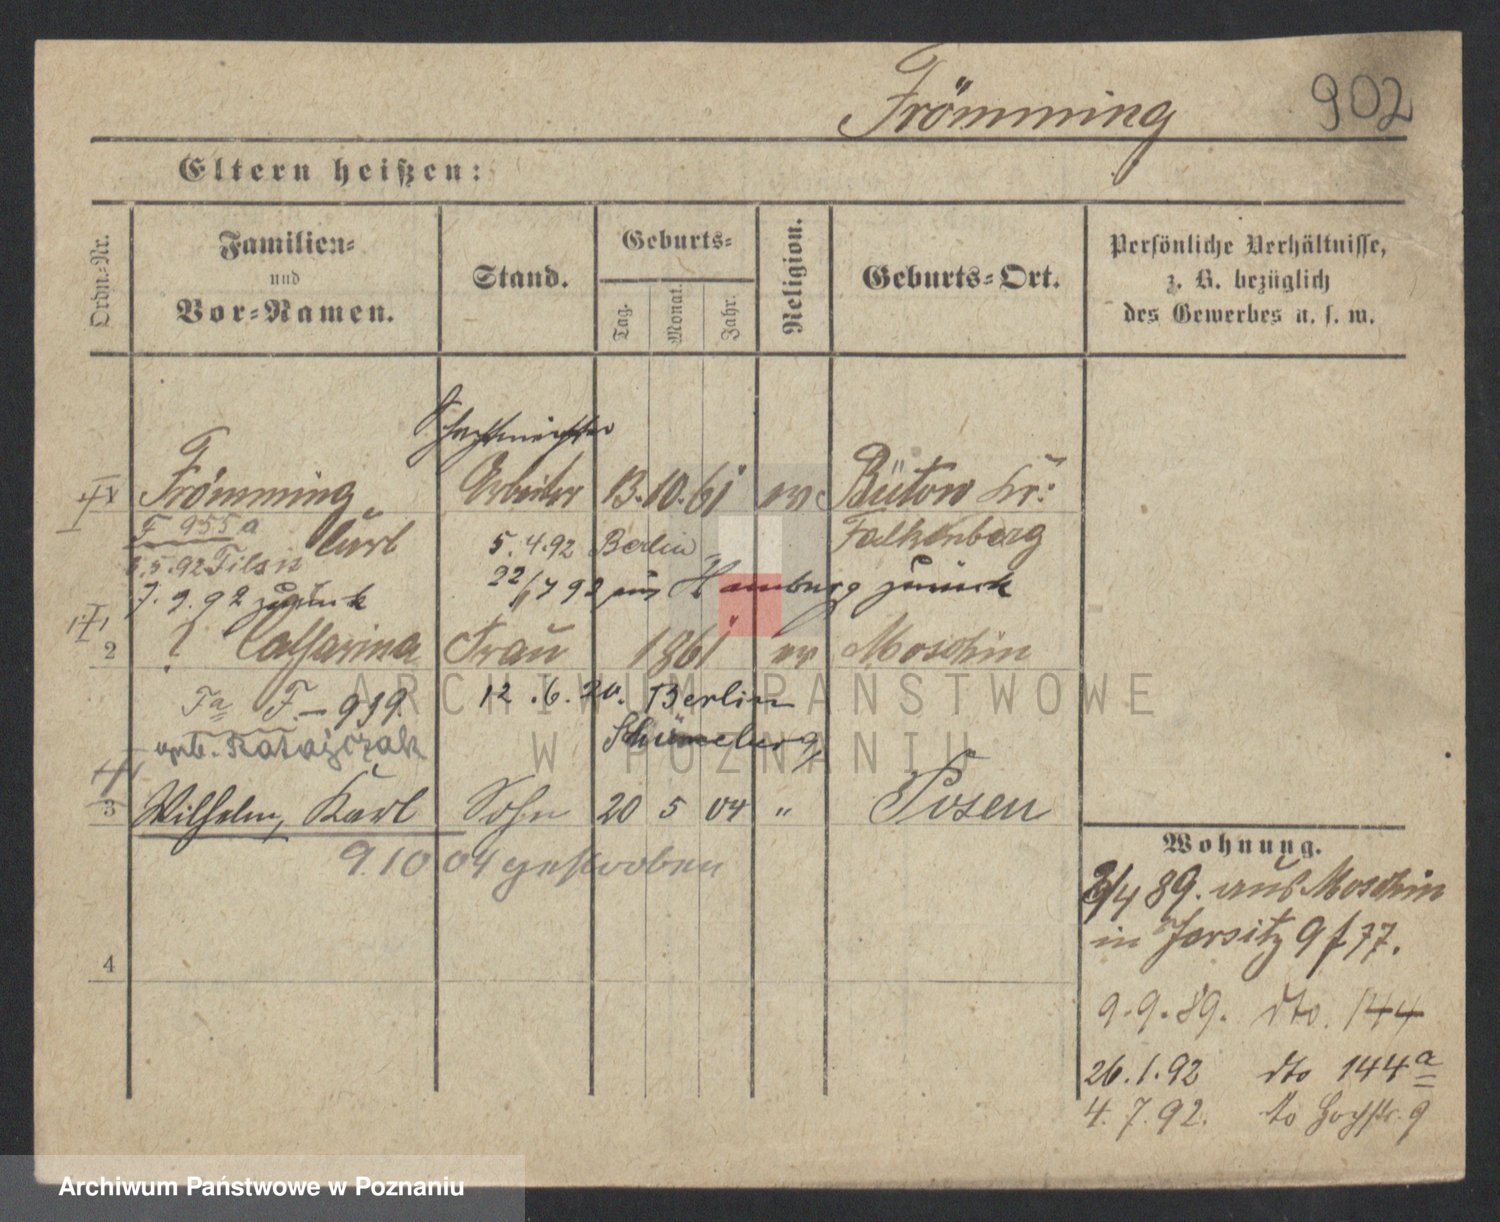 Frömming 902
Eltern heißen:
Ordn.-Nr.
Familien-
und
Vor-Namen.
Stand.
Geburts-
Tag.
Monat.
Jahr.
Religion.
Geburts-Ort.
Persönliche Verhältnisse,
z. B. bezüglich
des Gewerbes u. s. w.
Schachtmeister
Frömming Arbeiter 13. 10. 61 ev Bütow Kr:
F 955a Carl 5. 4. 92 Berlin Falkenberg
5. 92 Tilsit 22/7 92 aus Hamburg zurück
7. 9. 92 zurück
2 ? Catharina Frau 1861 ev Moschin
Fa F. 919. 12. 6. 20. Berlin
Schöneberg
geb. Ratajczak
3 Wilhelm, Karl Sohn 20 5 04 " Posen
9. 10 04 gestorben
4
Wohnung.
3/4 89. aus Moschin
in Jersitz 9 f 77.
9. 9. 89. dto. 144
26. 1. 92 dto 144a
4. 7. 92. to Hochstr. 9
ARCHIWUM PAŃSTWOWE
W POZNANIU
Archiwum Państwowe w Poznaniu